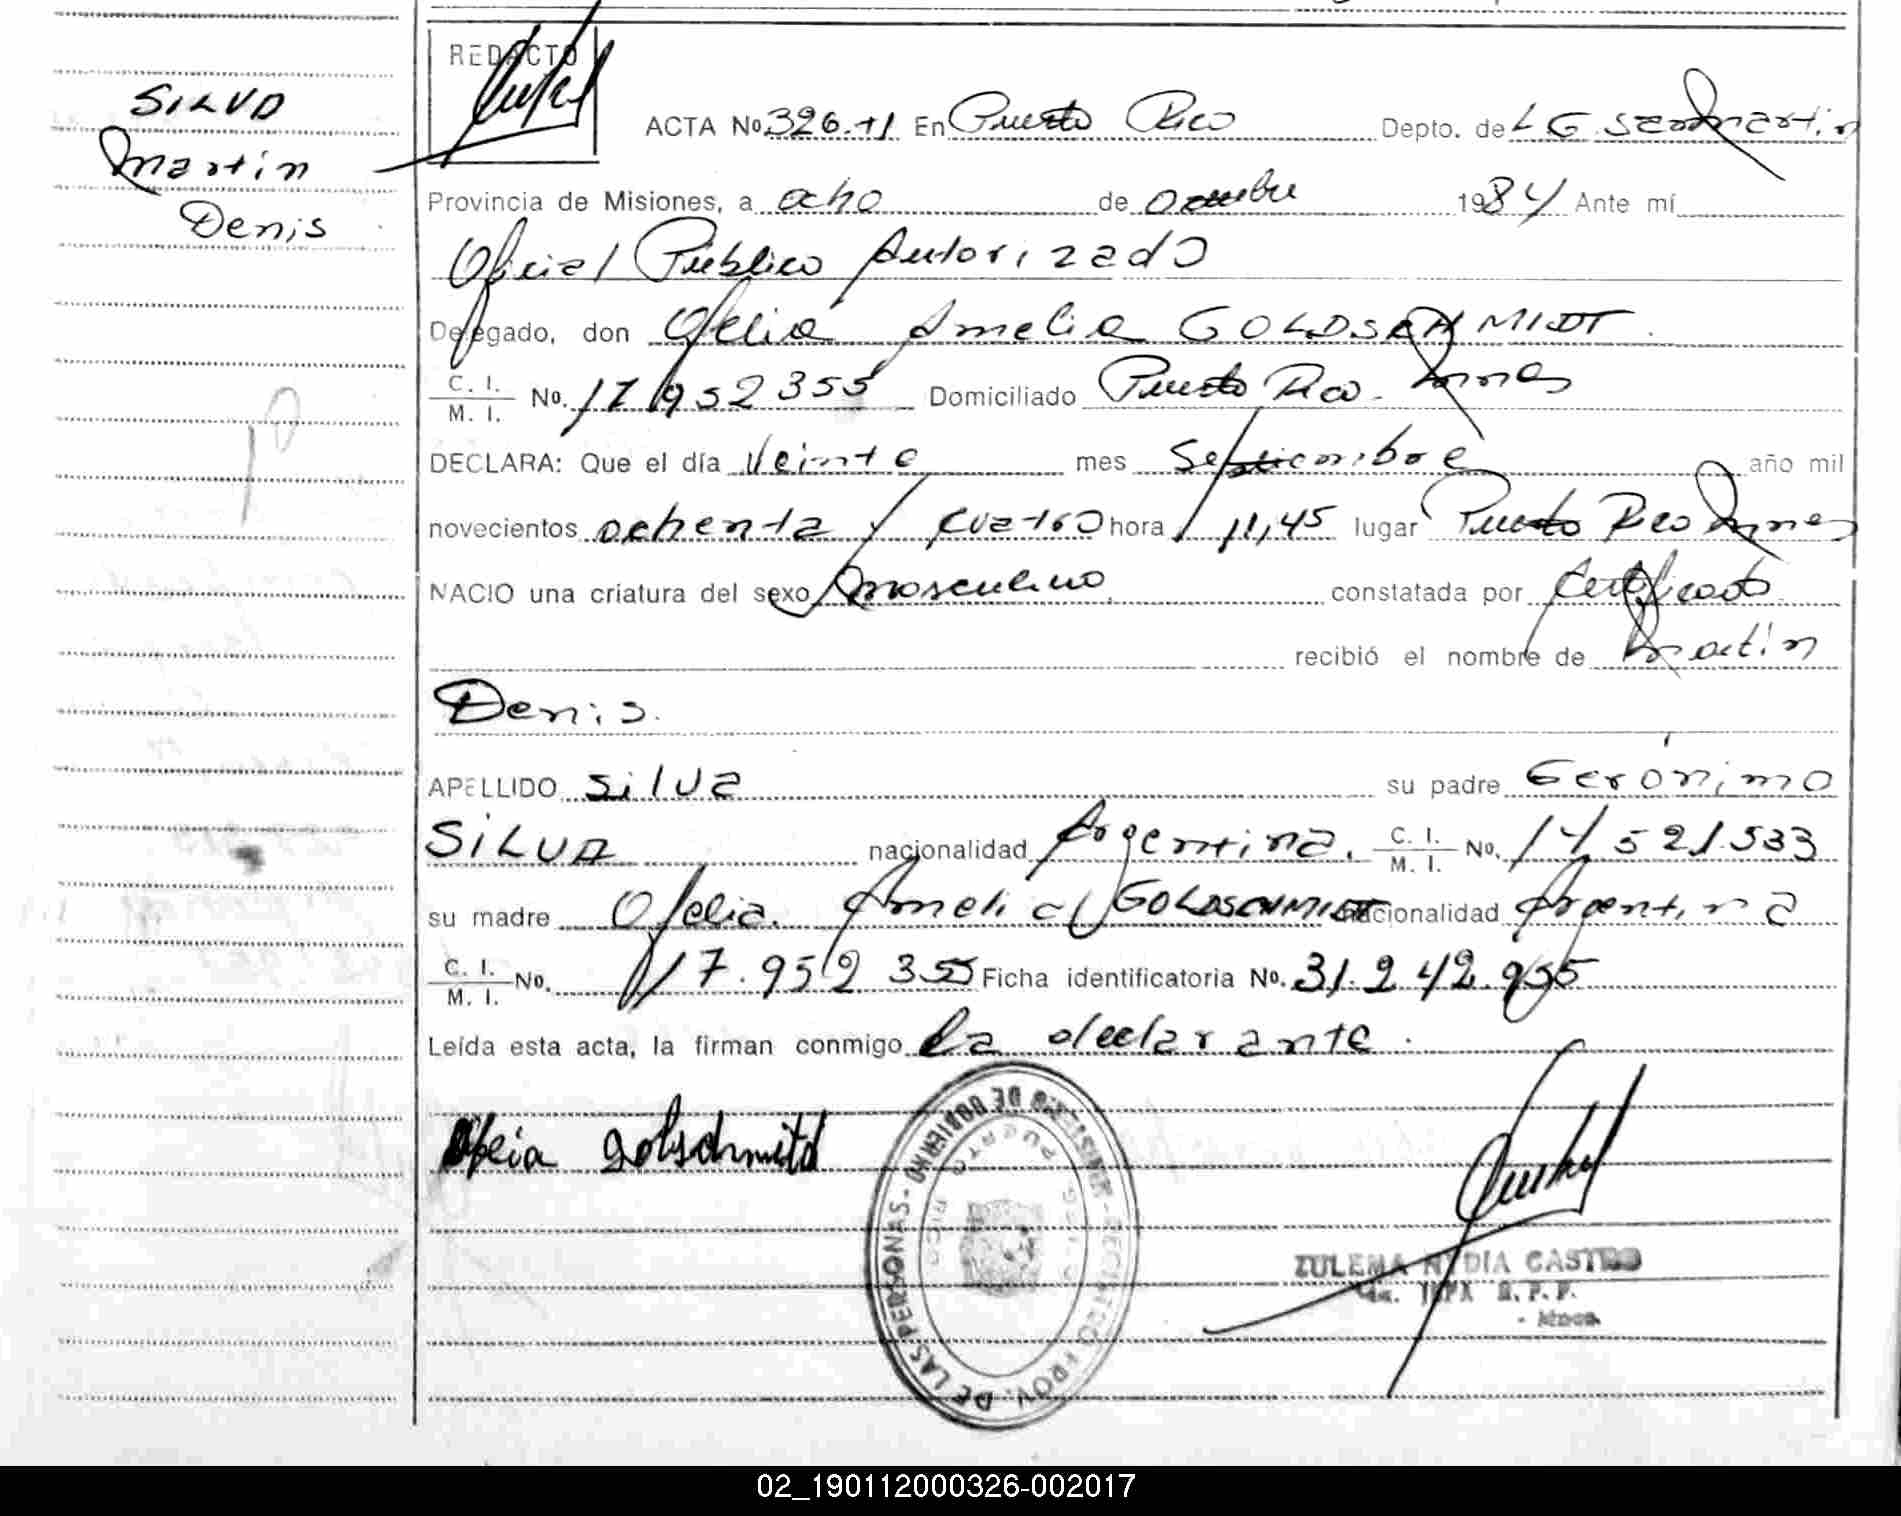 SILVA
Martin
Denis
REDACTO
ACTA No. 326. T1 En Puerto Rico Depto. de L G San Martin
Provincia de Misiones, a ocho de Octubre 1984 Ante mí
Oficial Público Autorizado
Delegado, don Ofelia Amelia GOLDSCHMIDT.
C. I.
M. I. No. 17.952355 Domiciliado Puerto Rico - Mnes
DECLARA: Que el día veinte mes Septiembre año mil
novecientos ochenta y cuatro hora 11,45 lugar Puerto Rico Mnes
NACIO una criatura del sexo masculino, constatada por Certificado
recibió el nombre de Martin
Denis.
APELLIDO Silva su padre Gerónimo
SILVA nacionalidad Argentina. C. I.
M. I. No. 14 521.533
su madre Ofelia Amelia GOLDSCHMIDT nacionalidad Argentina
C. I.
M. I. No. 17.952 355 Ficha identificatoria No. 31.242.955
Leída esta acta, la firman conmigo la declarante.
Ofelia Golschmitd
DE LAS PERSONAS - MINISTERIO DE GOBIERNO
PUERTO RICO
ZULEMA NYDIA CASTRO
JEFA R. P. P.
- Mnes.
02_190112000326-002017